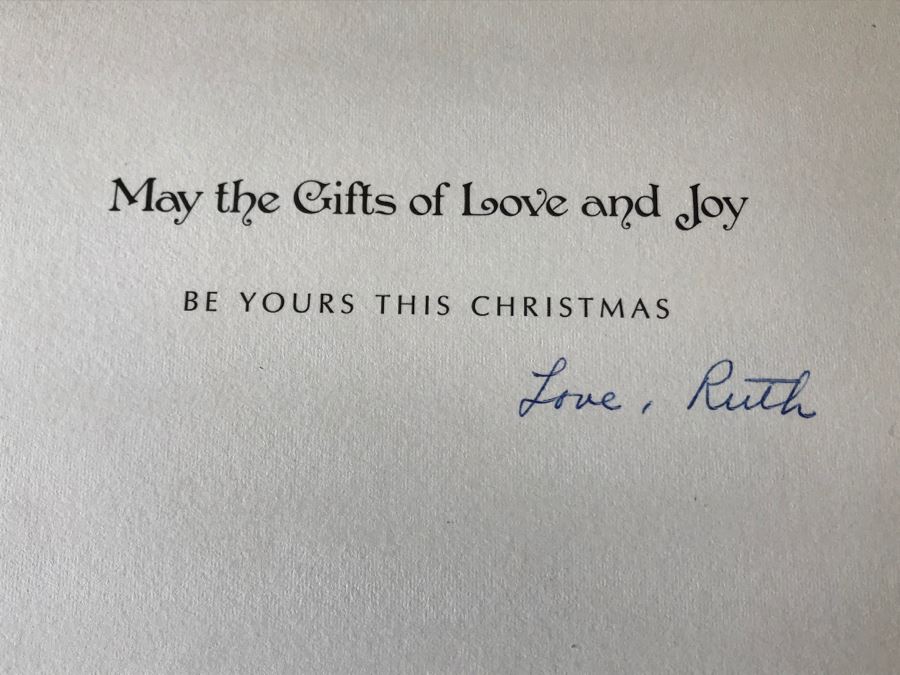 May the Gifts of Love and Joy
BE YOURS THIS CHRISTMAS
Love, Ruth